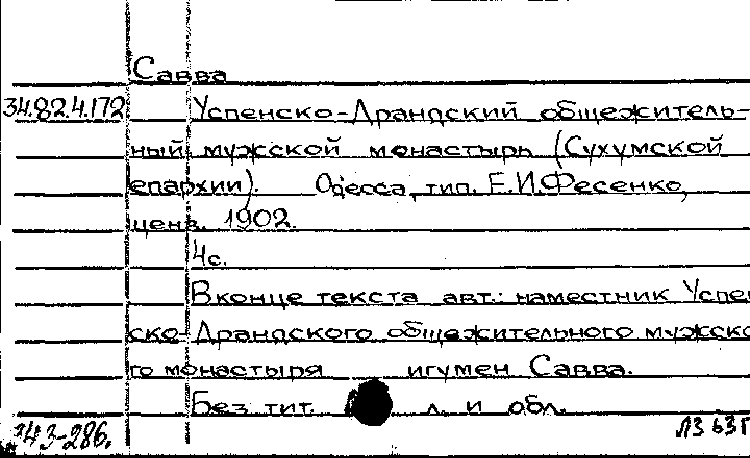 Савва
34.82.4.172 Успенско-Драндский общежитель-
ный мужской монастырь (Сухумской
епархии). Одесса, тип. Е.И.Фесенко,
ценз. 1902.
4с.
В конце текста авт.: наместник Успен
ско-Драндского общежительного мужско
го монастыря игумен Савва.
Без тит. л. и обл.
343-286. ЛЗ 63Г